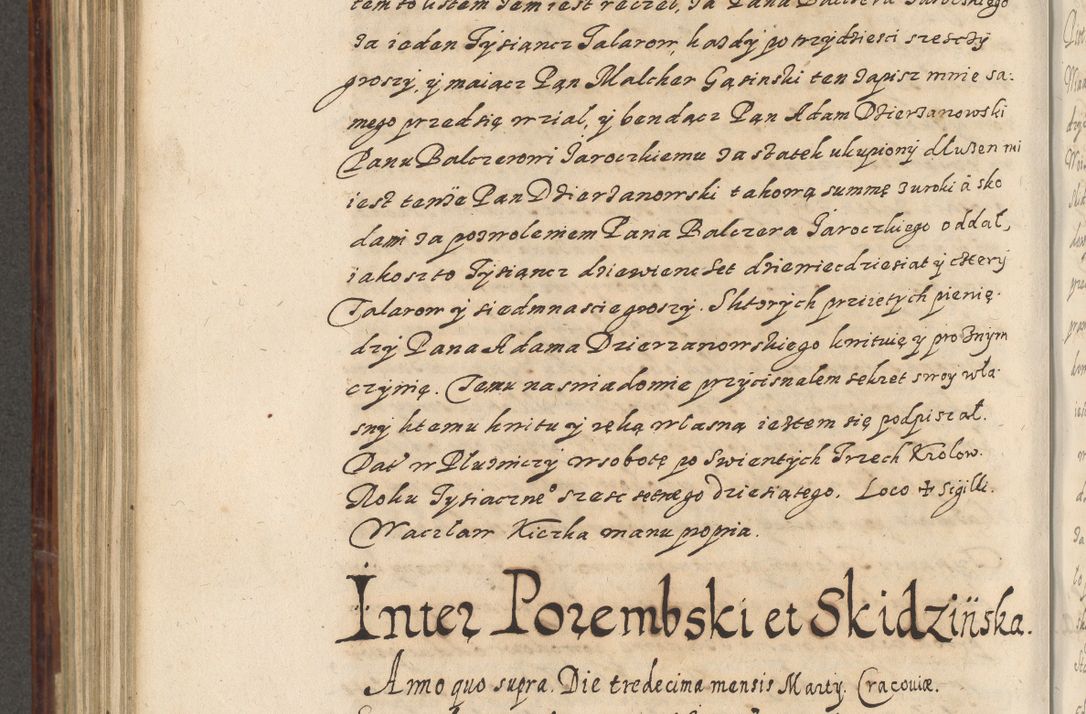 tem to listem Jem iest reczel, Za Pana Balczera Jaroczkiego
Za ieden Tysiancz Talarow, kazdy po trzydziesci szesczy
groszy, y maiacz Pan Malcher Gąsinski ten Zapisz mnie sa-
mego przedsię wzial, y bendącz Pan Adam Dzierzanowski
Panu Balczerowi Jaroczkiemu za statek ukupiony dluzen mi
iest tenze Pan Dzierzanowski takową summę z uroki á sko
dami za pozwoleniem Pana Balczera Jaroczkiego oddal,
iakosz to Tysiancz dziewiencset dziewiecdziesiat y cztery
Talarow y siedmnascie groszy. Sktorych przizetych pienię-
dzy Pana Adama Dzierzanowskiego kwituię y proznym
czynię. Temu na swiadomie przycisnalem sekret swoy wła-
sny ktemu kwitu y ręką wlasną iestem się podpiszał.
Dat w Pludniczy w sobotę po Swientych Trzech Krolow.
Roku Tysiaczneº szesc setnego dziesiątego. Loco ✝ Sigilli.
Waczław Kiczka manu popria.
Inter Porembski et Skidzińska.
Anno quo supra. Die tredecima mensis Marty. Cracoviæ.